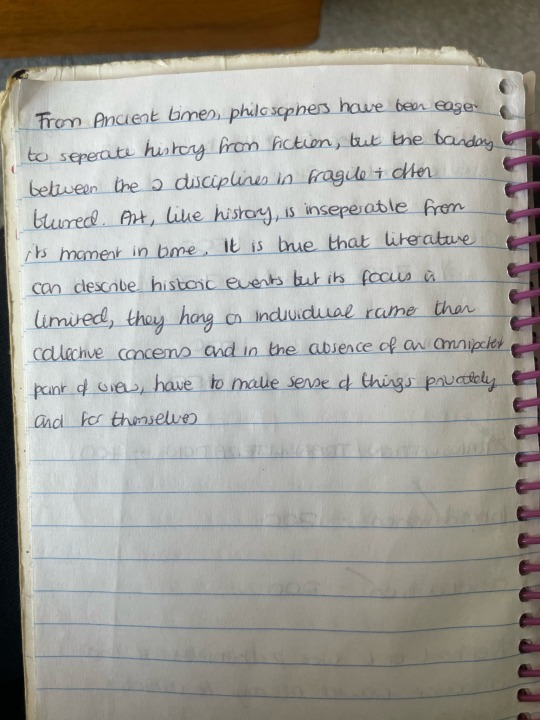 From Ancient times, philosophers have been eager
to seperate history from fiction, but the
between the 2 disciplines is fragile + often
blurred. Art, like history, is inseperable from
its moment in time. It is true that literature
can describe historic events but its focus is
limited, they hang on individual rather than
collective concerns and in the absence of an
point of view, have to make sense of things privately
and for themselves